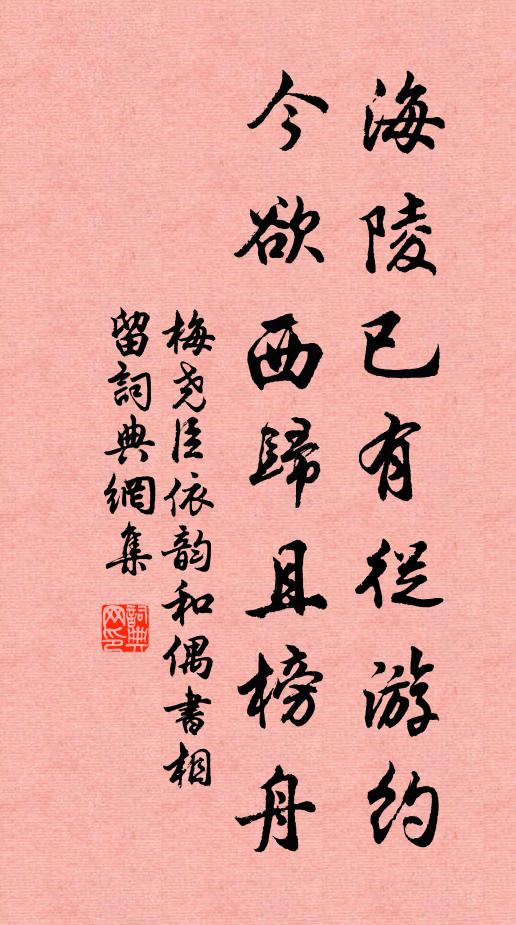 海陵已有從游約
今欲西歸且榜舟
梅尧臣依韵和偶書相
留詞典網集
詞典网印